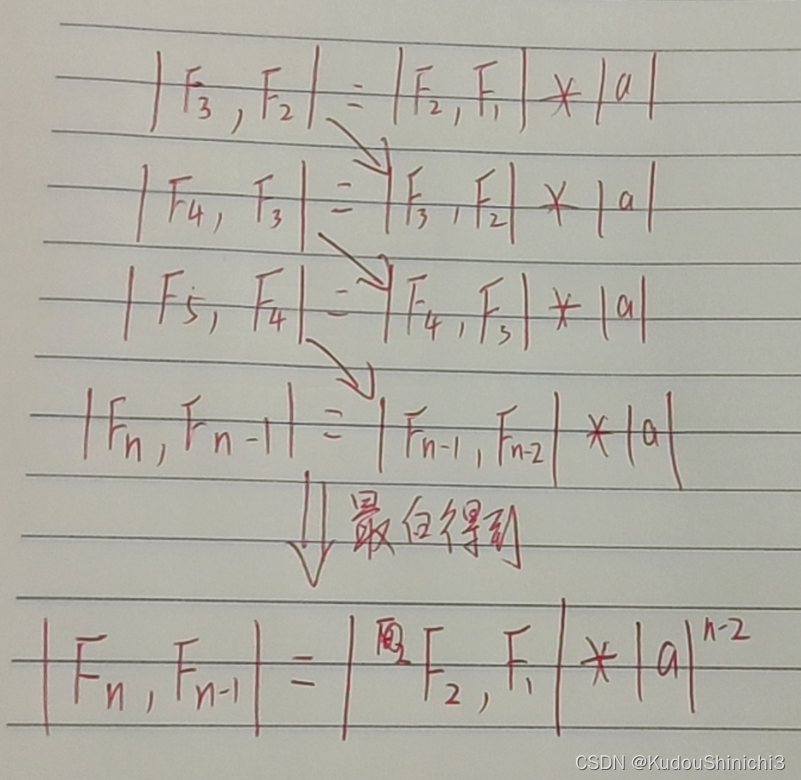 |F₃, F₂| = |F₂, F₁| * |a|
|F₄, F₃| = |F₃, F₂| * |a|
|F₅, F₄| = |F₄, F₃| * |a|
|Fₙ, Fₙ₋₁| = |Fₙ₋₁, Fₙ₋₂| * |a|
最白得到
|Fₙ, Fₙ₋₁| = |F₂, F₁| * |a|ⁿ⁻²
CSDN @KudouShinichi3